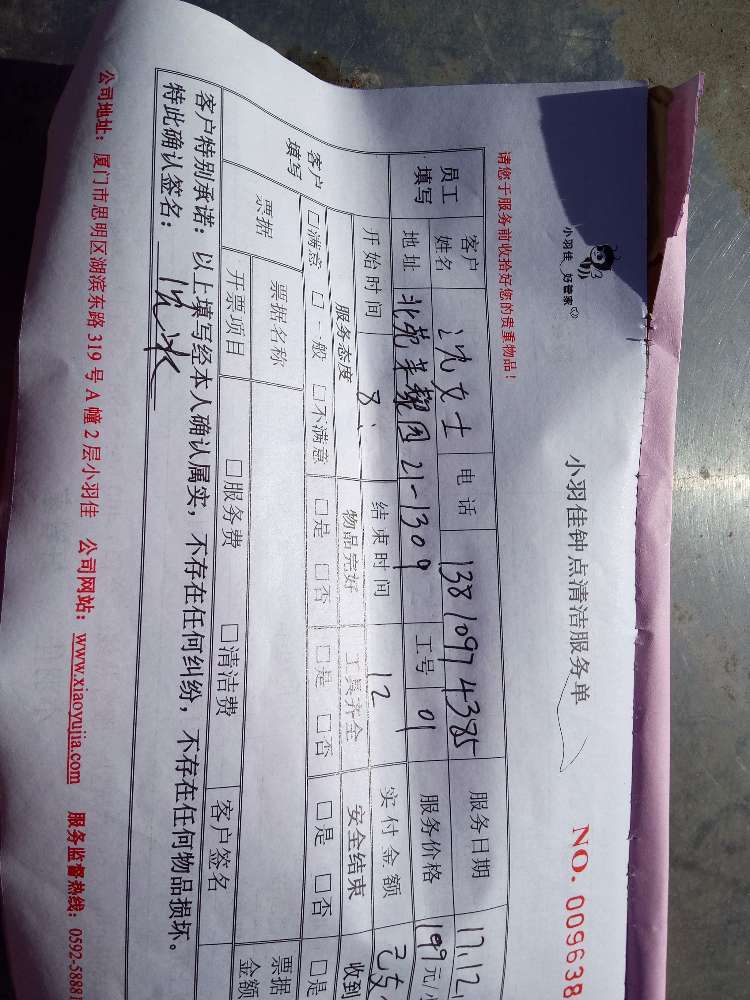 小羽佳 好管家
小羽佳钟点清洁服务单
NO. 009638
请您于服务前收拾好您的贵重物品！
员工填写 客户姓名 沈女士 电话 13810974385 服务日期 17.12.
地址 北苑苹梨园21-1309 工号 01 服务价格 199元/
开始时间 8: 结束时间 12 实付金额 已支
客户填写 服务态度 物品完好 工具齐全 安全结束 收到
□满意 □一般 □不满意 □是 □否 □是 □否 □是 □否 □是
票据 票据名称 票据金额
开票项目 □服务费 □清洁费 客户签名
客户特别承诺：以上填写经本人确认属实，不存在任何纠纷，不存在任何物品损坏。
特此确认签名：沈冰
公司地址：厦门市思明区湖滨东路319号A幢2层小羽佳 公司网站：www.xiaoyujia.com 服务监督热线：0592-58881